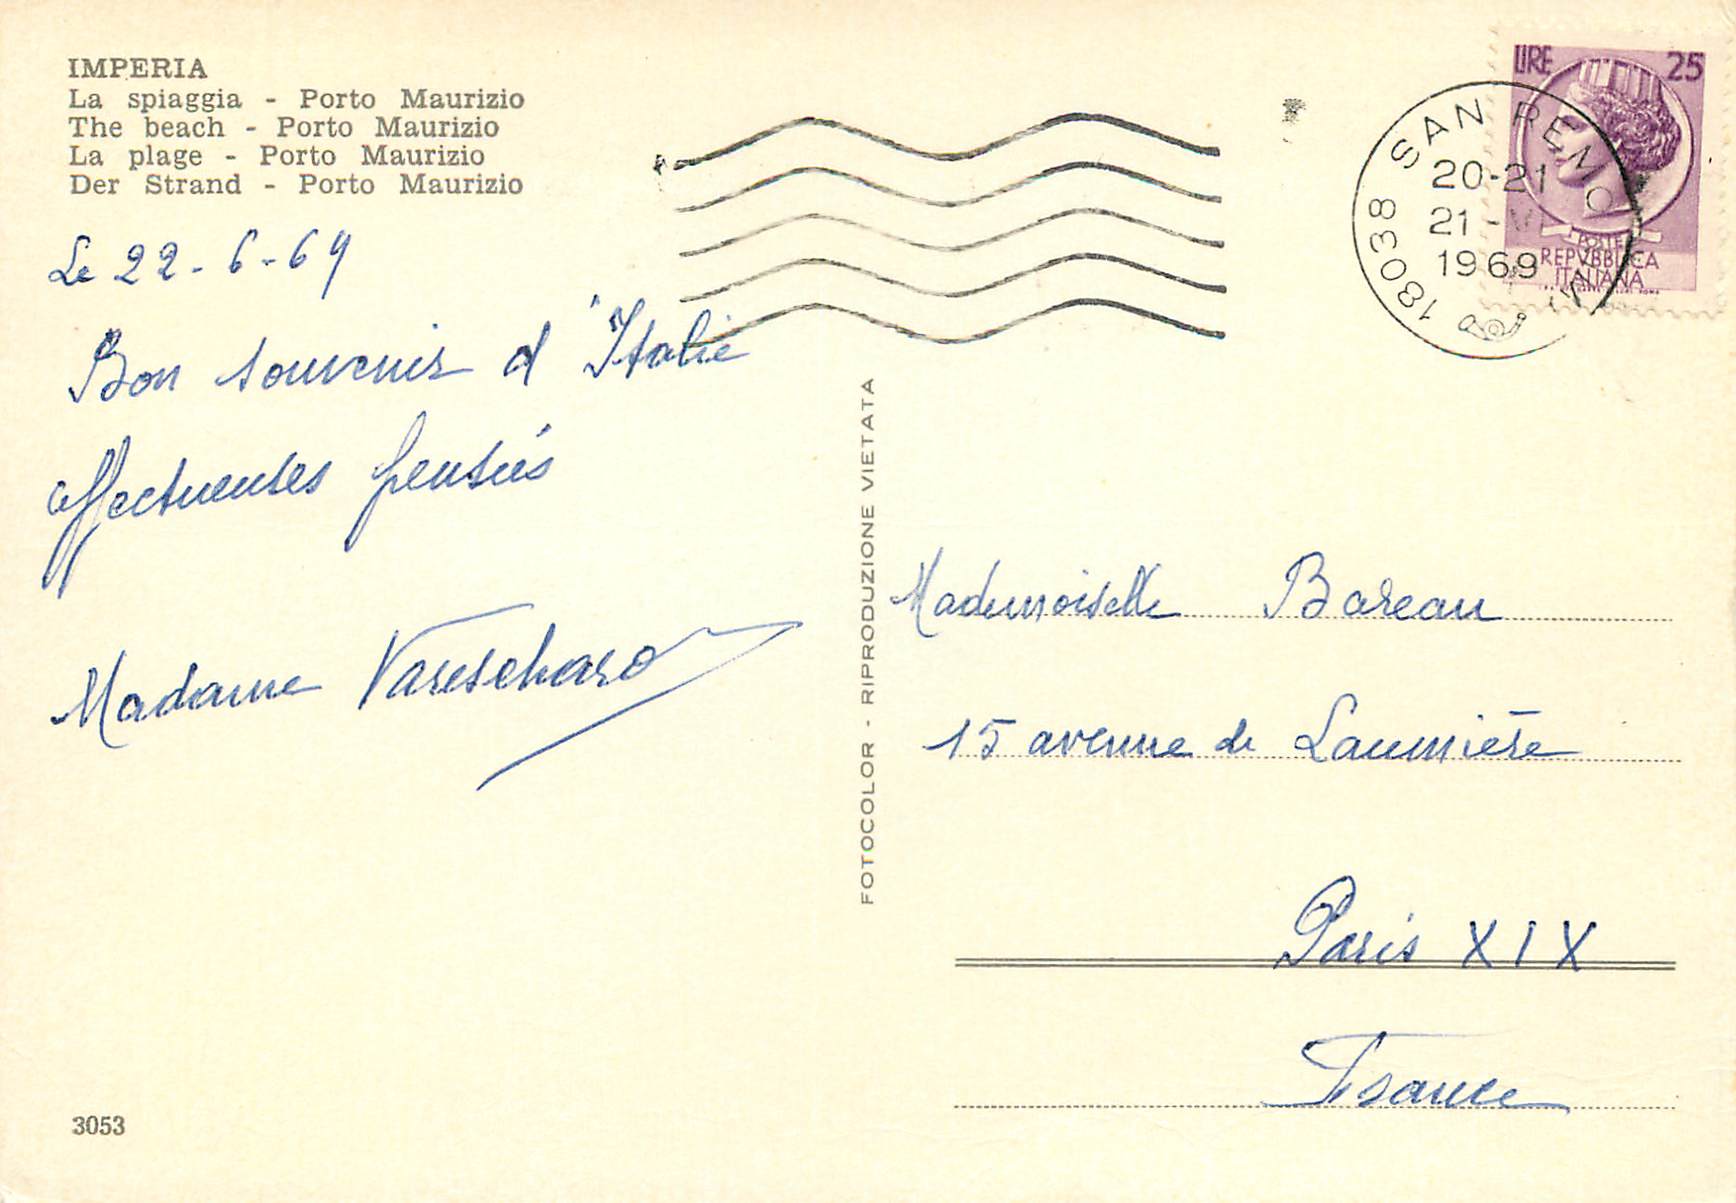 IMPERIA
La spiaggia - Porto Maurizio
The beach - Porto Maurizio
La plage - Porto Maurizio
Der Strand - Porto Maurizio
Le 22-6-69
Bon souvenir d'Italie
affectueuses pensées
Madame
3053
FOTOCOLOR - RIPRODUZIONE VIETATA
LIRE 25
POSTE
REPVBBLICA
ITALIANA
18038 SAN REMO
20-21
21-VI
1969
Mademoiselle Bareau
15 avenue de Laumière
Paris XIX
France